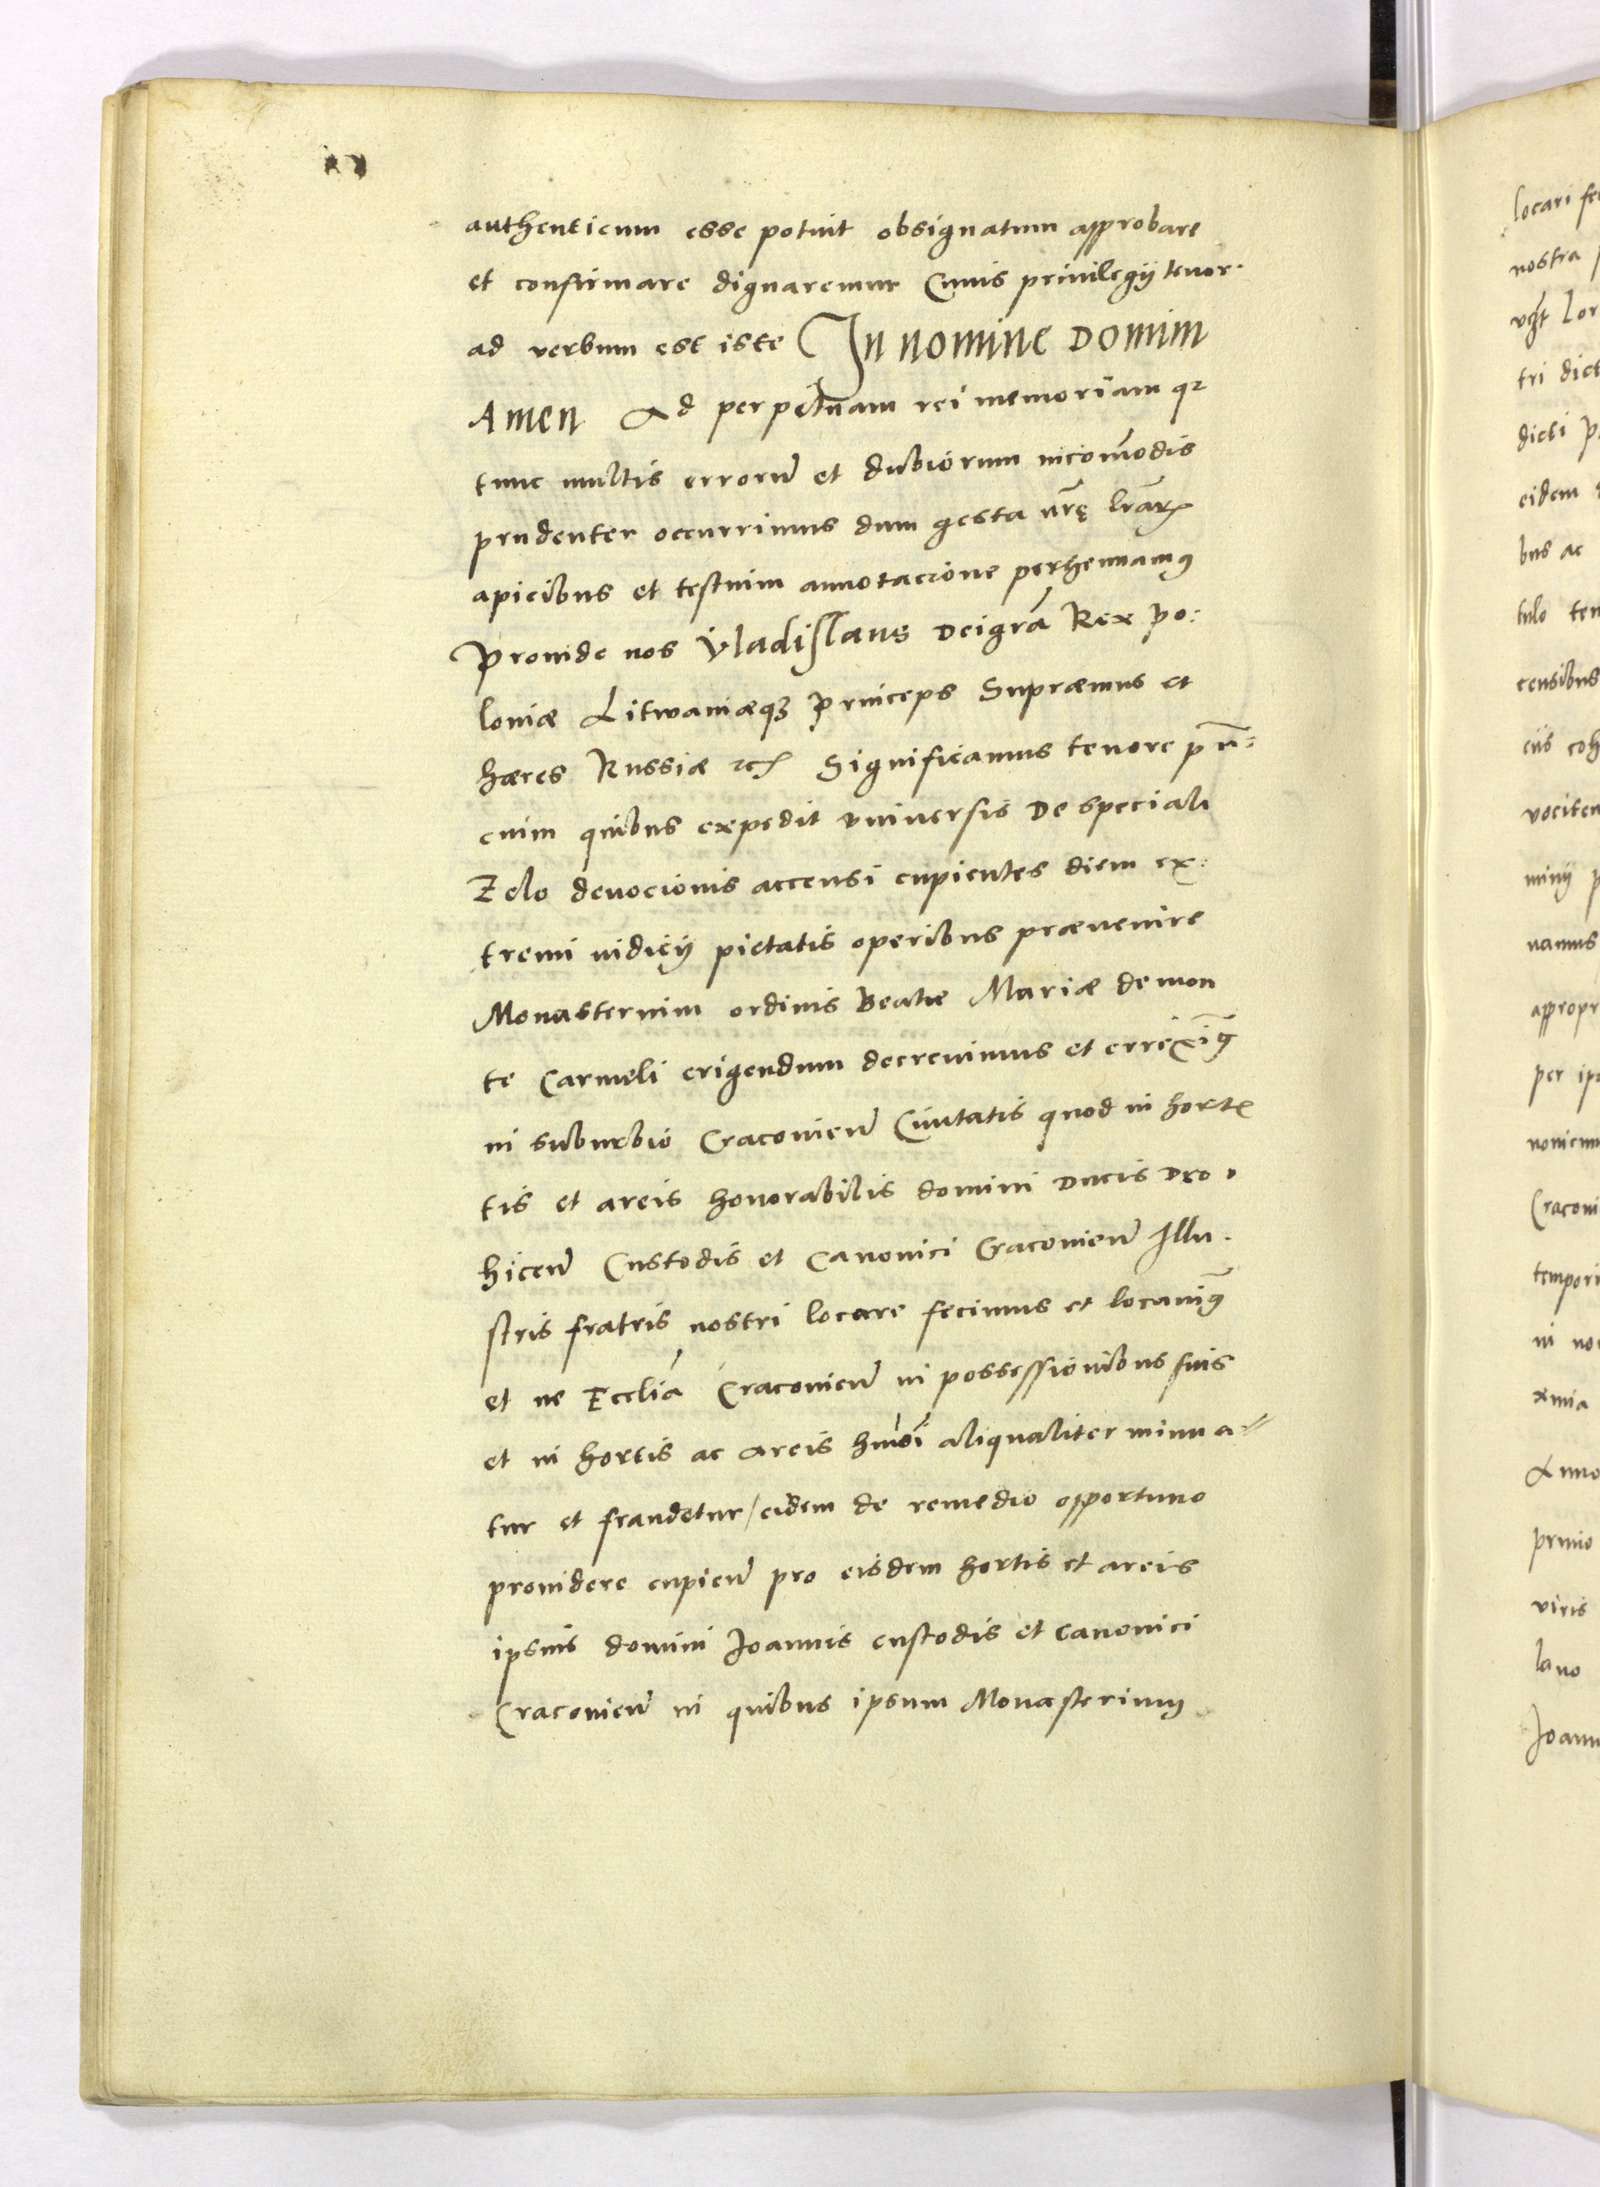 authenticum esse potuit obsignatum approbare
et confirmare dignaremur Cuius priuilegij tenor
ad verbum est iste In nomine Domini
Amen Ad perpetuam rei memoriam qꝛ
tunc multis errorũ et dubiorum incom̃odis
prudenter occurrimus dum gesta nrẽ lrãrꝝ
apicibus et testium annotacione perhennamꝰ
Prouide nos Vladislaus Dei grã Rex Po:
loniæ Litwaniæqꝫ Princeps Supræmus et
hæres Russiæ etc Significamus tenore pñ:
cium quibus expedit vniuersis De speciali
Zelo deuocionis accensi cupientes diem ex:
tremi iudicij pietatis operibus præuenire
Monasterium ordinis Beatæ Mariæ de mon
te Carmeli erigendum decreuimus et erreximꝰ
in suburbio Cracouieñ Ciuitatis quod in hor
tis et areis honorabilis domini Ducis Dro
hiceñ Custodis et Canonici Cracouieñ Illu
stris fratris nostri locare fecimus et locauimꝰ
et ne Ecclia Cracouieñ in possessionibus suis
et in hortis ac areis hmõi aliqualiter minua
tur et fraudetur / eidem de remedio opportuno
prouidere cupieñ pro eisdem hortis et areis
ipsius domini Joannis custodis et canonici
Cracouieñ in quibus ipsum Monasterium
locari
nostra
tri dict
dicti
eidem
bus ac
censibus
per
Joann